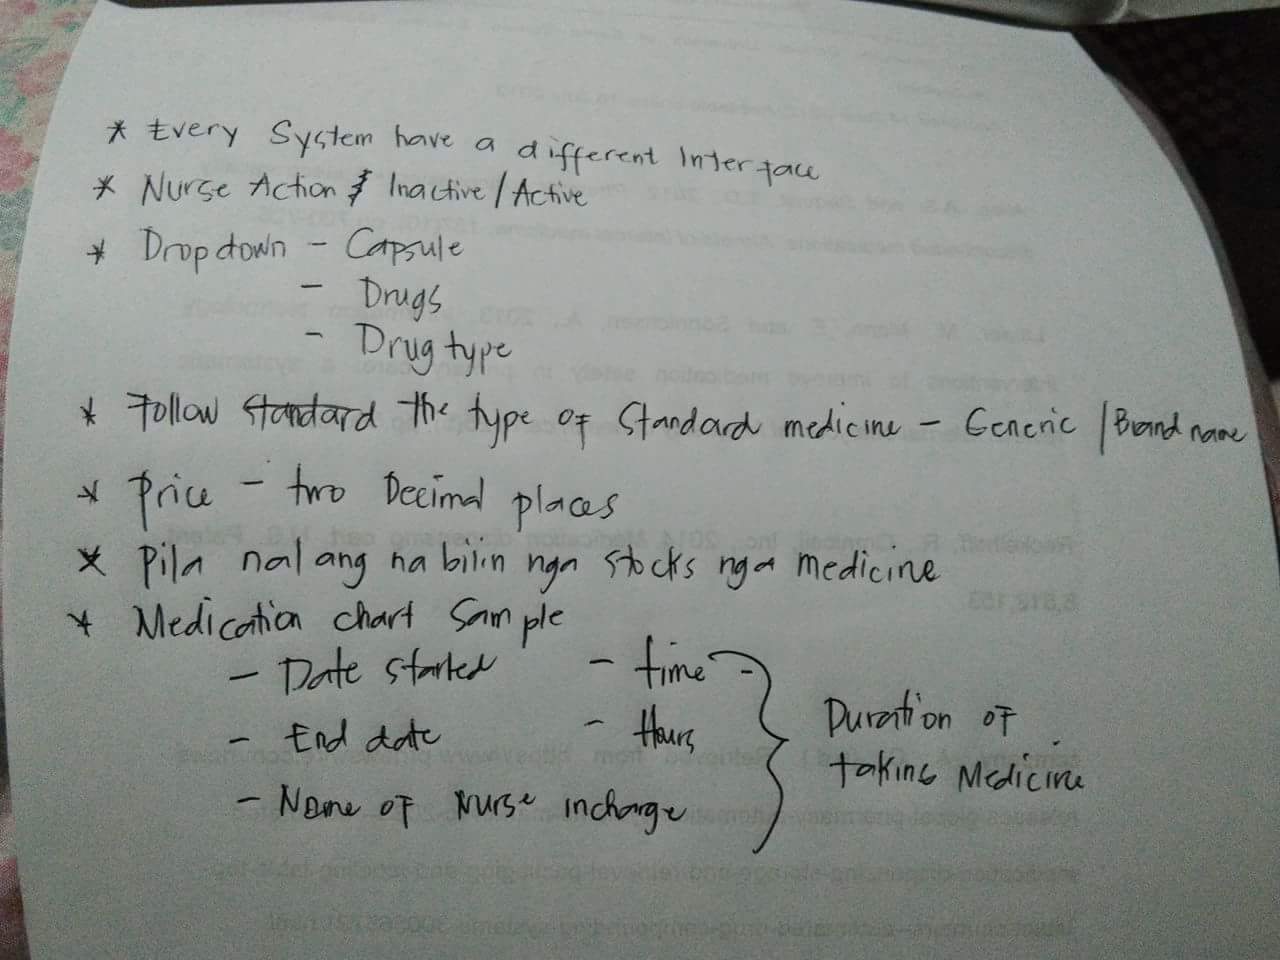 * Every System have a different Interface
* Nurse Action & Inactive / Active
* Dropdown - Capsule
- Drugs
- Drug type
* Follow Standard the type of Standard medicine - Generic / Brand name
* Price - two Decimal places
* Pila nalang nabilin nga stocks nga medicine
* Medication chart Sample
- Date started - time
- End date - Hours
- Name of Nurse incharge
Duration of
taking Medicine